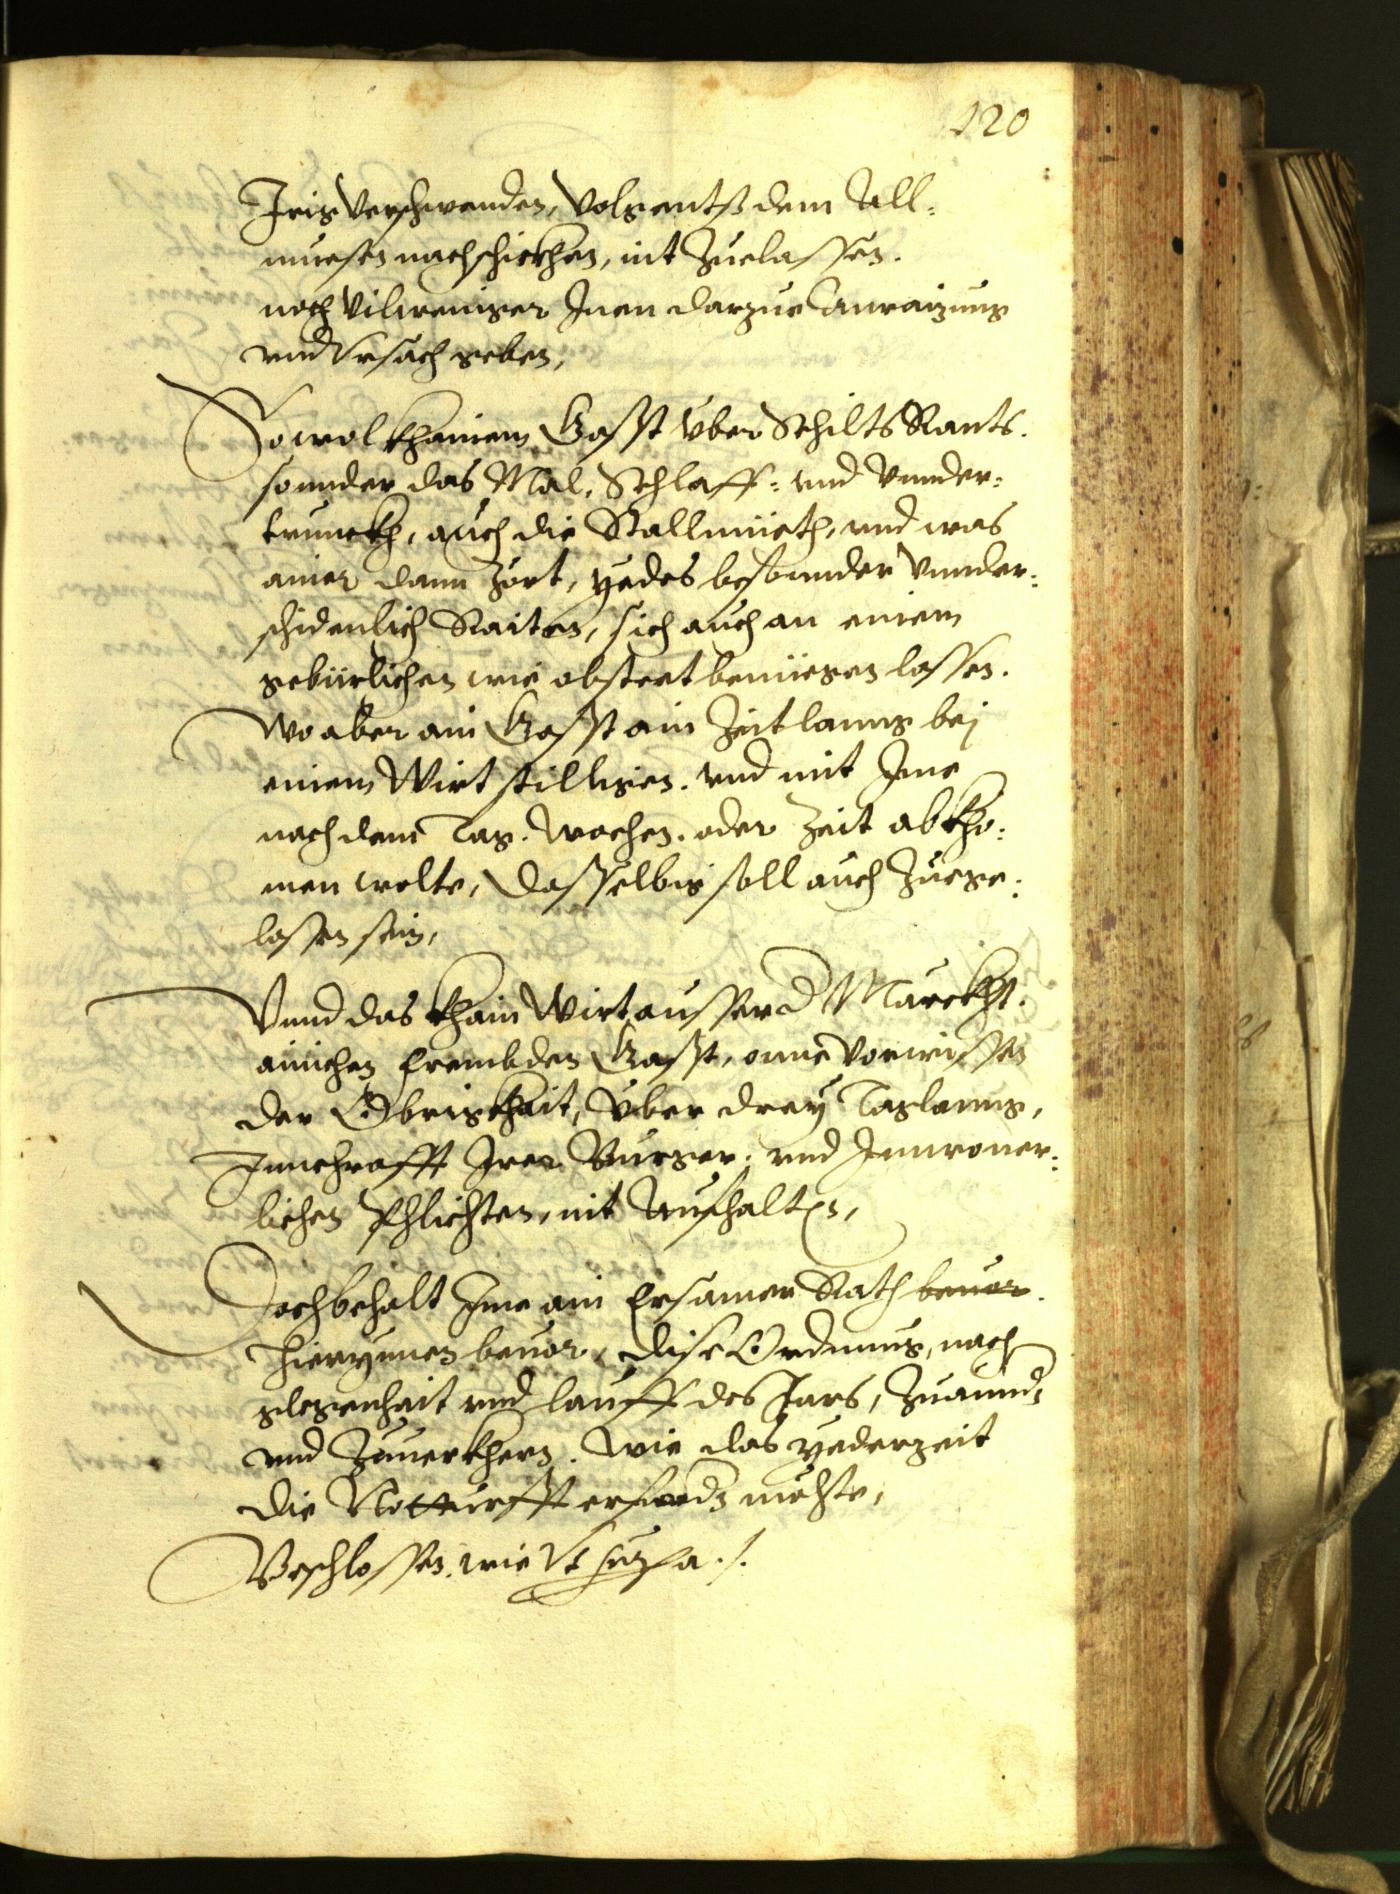 120
Irig verschwenden, volgents dem All:
muesen nachschickhen, nit Zuelassen.
noch vilweniger Inen darzue Anraizung
vnd Vrsach geben,
Sowol khainem Gasst vber Schilts Rants.
sonnder das Mal, Schlaff: vnd Vnnder:
trunckh, auch die Stallmüeth, vnd was
ainer dann Zört, yedes besonnder vnnder:
schidenlich Raiten, sich auch an einem
gebürlichen wie obsteet benüegen lassen.
Wo aber ain Gasst ain Zeitlanng bej
einem Wirt stilligen. vnd mit Ime
nach dem Tag. Wochen. oder Zeit abkho:
men wolte, Dasselbig soll auch Zuege:
lassen sein,
Vnnd das khain Wirt ausser d Märckht.
ainichen frembden Gasst, onne vorwissen
der Obrigkhait, vber drey Taglanng,
Innchrafft Irer Burger: vnd Innwoner:
lichen Phlichten, nit Aufhalten,
Doch behalt Ime ain Ersamer Rath beuor.
hierynnen beuor, dise Ordnung, nach
glegenhait vnd lauff des Jars, Zuännd
vnd Zuuerkhern. wie das yederzeit
die Notturfft erfordern möchte,
Beschlossen. wie Vt supra ./.